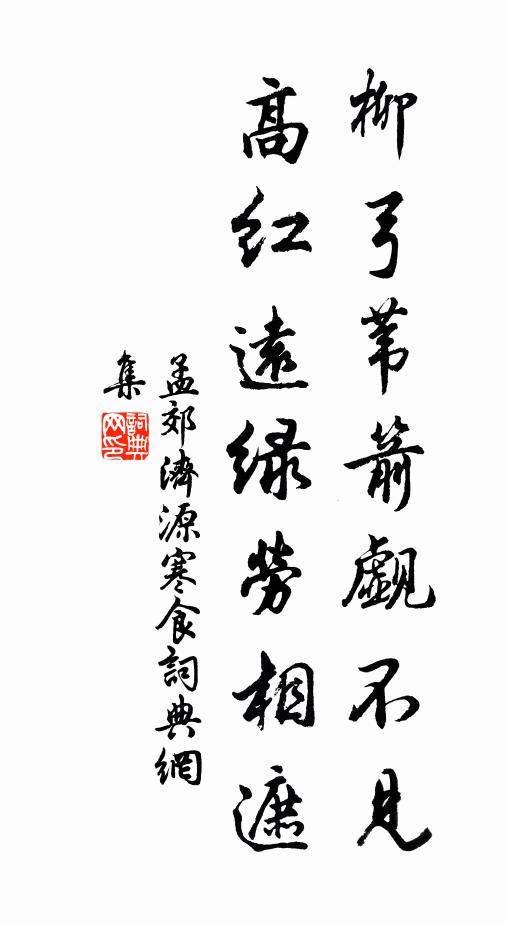 柳弓苇箭觑不见
高红远绿劳相遮
孟郊济源寒食词典网
集
词典网印